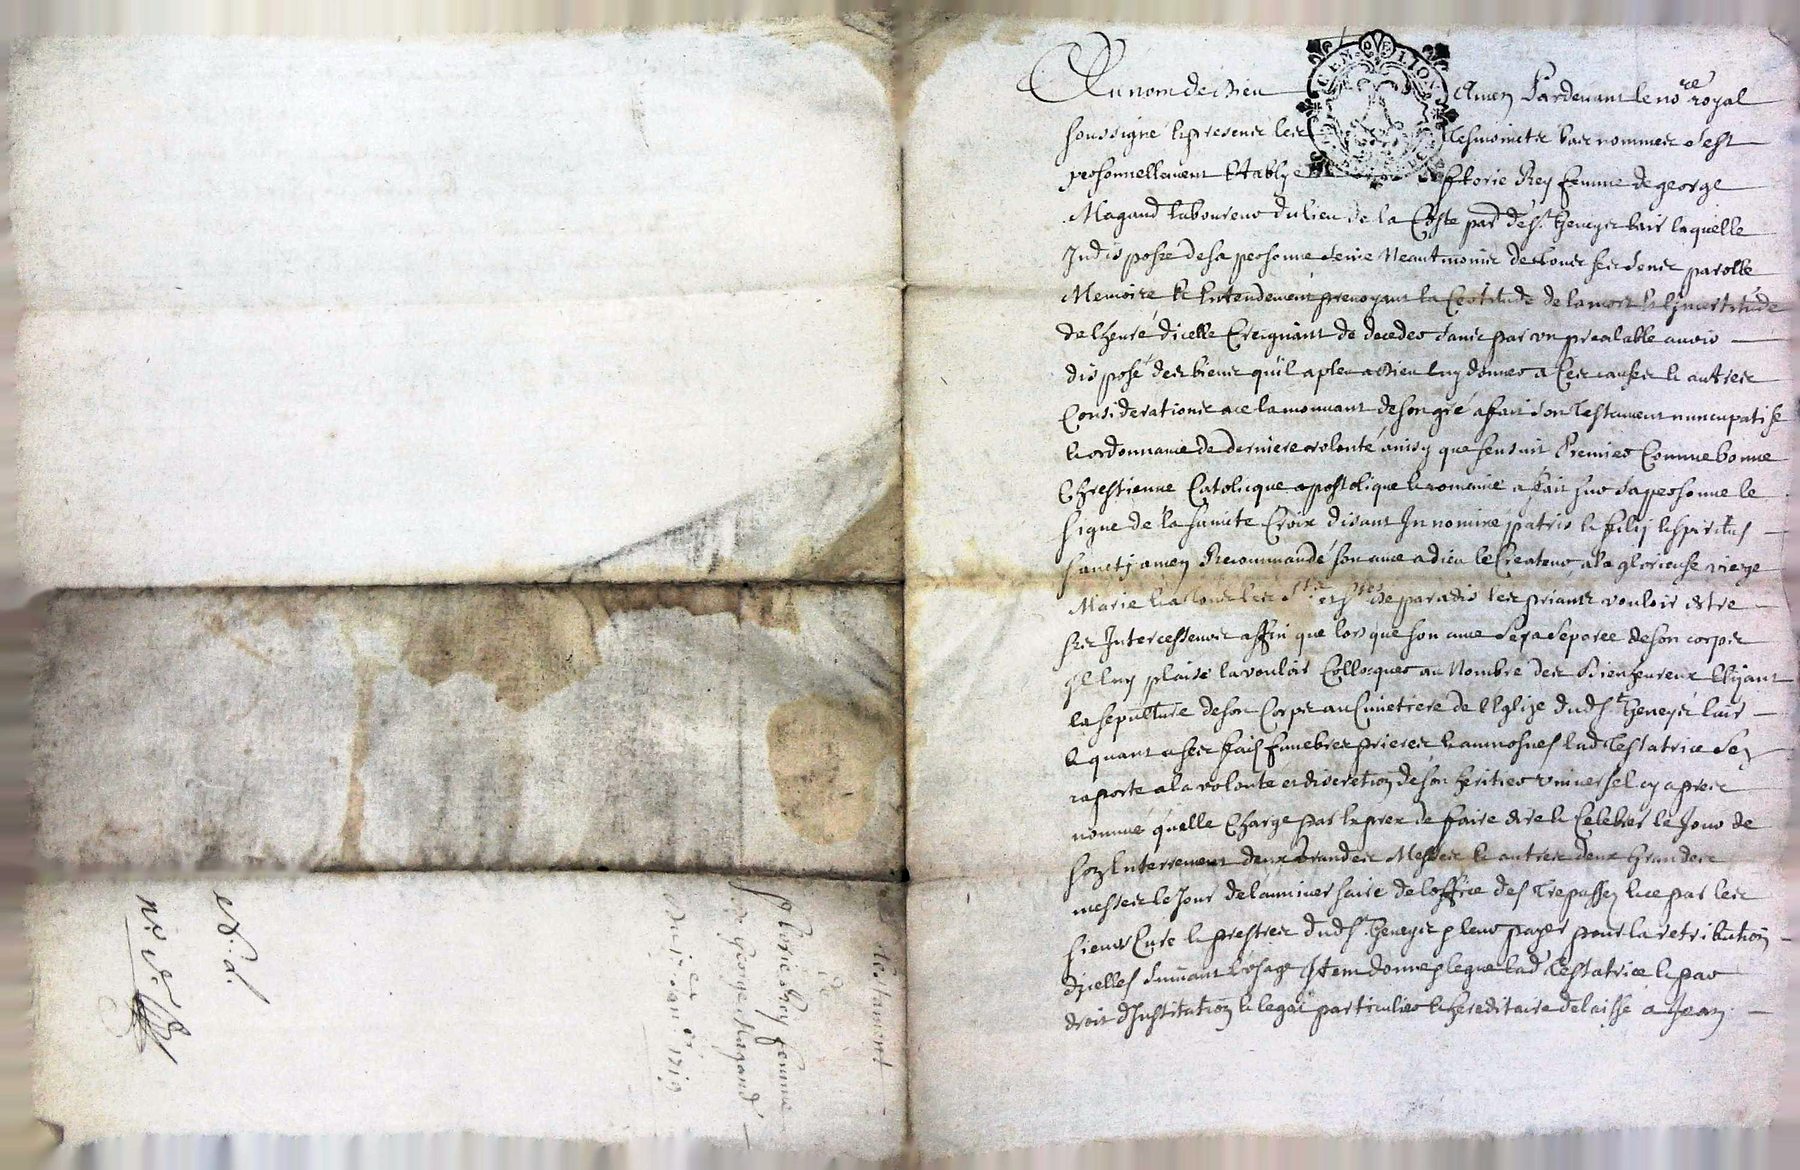 Au nom de Dieu Amen Pardevant le no.re royal
soussigné & presens les tesmoincts bas nommes s'est
personnellement establye fleorie Rey femme de george
Magand laboureur du lieu de la Coste par.d de S.t Geneys lair laquelle
Indisposée de sa personne saine Neantmoins de tous ses sens parolle
Memoire & Entendement prevoyant la Certitude de la mort & l'Jncertitude
de l'heure d'icelle Creignant de deceder sans par un prealable avoir
disposé des biens qu'il a pleu a Dieu luy donner a Ces causes & autres
Considerations a ce la mouvant de son gré a fait son Testament nuncupatif
& ordonnance de derniere volonté ainsy que sensuit Premier Comme bonne
Chrestienne Catolicque apostolique & romaine a fait sur sa personne le
signe de la sainte Croix disant In nomine patris & filij & spiritus
sancti amen Recommandé son ame a dieu le Createur a la glorieuse vierge
Marie & a tous les S.ts et S.tes de paradis les priants vouloir estre
ses Intercesseurs affin que lors que son ame sera separee de son corps
Il luy plaise la vouloir Collocquer au Nombre des Bienheureux Elizant
la sepulture de son Corps au Cimetiere de l'Eglize dud S.t Geneys lair
& quant a ses frais funebres prieres & aumosnes lad Testatrice s'en
raporte a la volonte et discretion de son heritier universel cy apres
nommé quelle Charge par Exprex de faire dire & Celebrer le Jour de
son Enterrement deux Grandes Messes & autres deux Grandes
messes le Jour de l'anniversaire de l'office des Trepassez & ce par les
sieurs Curé & prestres dud S.t Geneys pleur payer pour la retribution
d'icelles suivant l'usage Item donne legue lad Testatrice & par
droit d'Institution & legat particulier & hereditaire delaisse a Jean
Testament
de
fleorie Rey femme
de George Magand
Du 17 Janv.er 1719